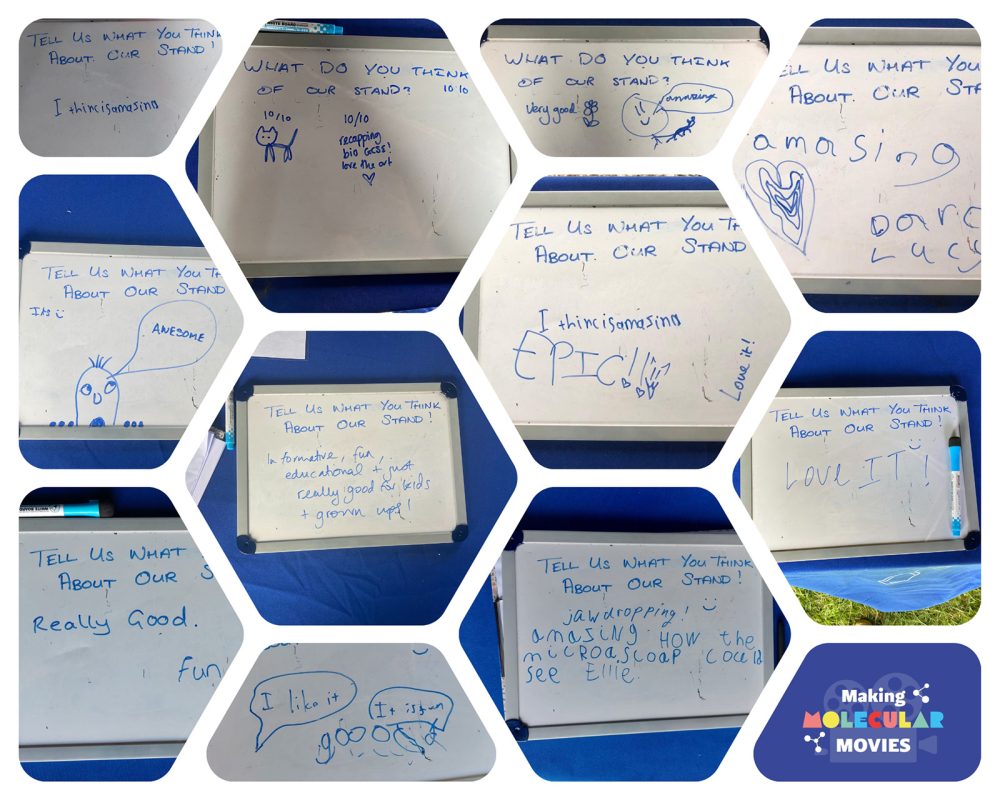 TELL US WHAT YOU THINK
ABOUT OUR STAND!
I thincisamasing
WHAT DO YOU THINK
OF OUR STAND? 10/10
10/10
10/10
recapping
bio GCSE!
love the art
WHAT DO YOU THINK
OF OUR STAND?
very good!
amazing
ELL US WHAT YOU
ABOUT OUR STA
amasing
Lucy
TELL US WHAT YOU TH
ABOUT OUR STAND
Its
AWESOME
TELL US WHAT YOU THIN
ABOUT OUR STAND
I thincisamasing
EPIC!!!
Love it!
TELL US WHAT YOU THINK
ABOUT OUR STAND!
Informative, fun,
educational + just
really good for kids
+ grown ups!
TELL US WHAT YOU THINK
ABOUT OUR STAND!
LOVE IT!
TELL US WHAT
ABOUT OUR S
Really Good.
fun
I like it
It is fun
good
TELL US WHAT YOU THINK
ABOUT OUR STAND!
jawdropping!
amasing HOW the
microascoap could
see Ellie.
Making
MOLECULAR
MOVIES